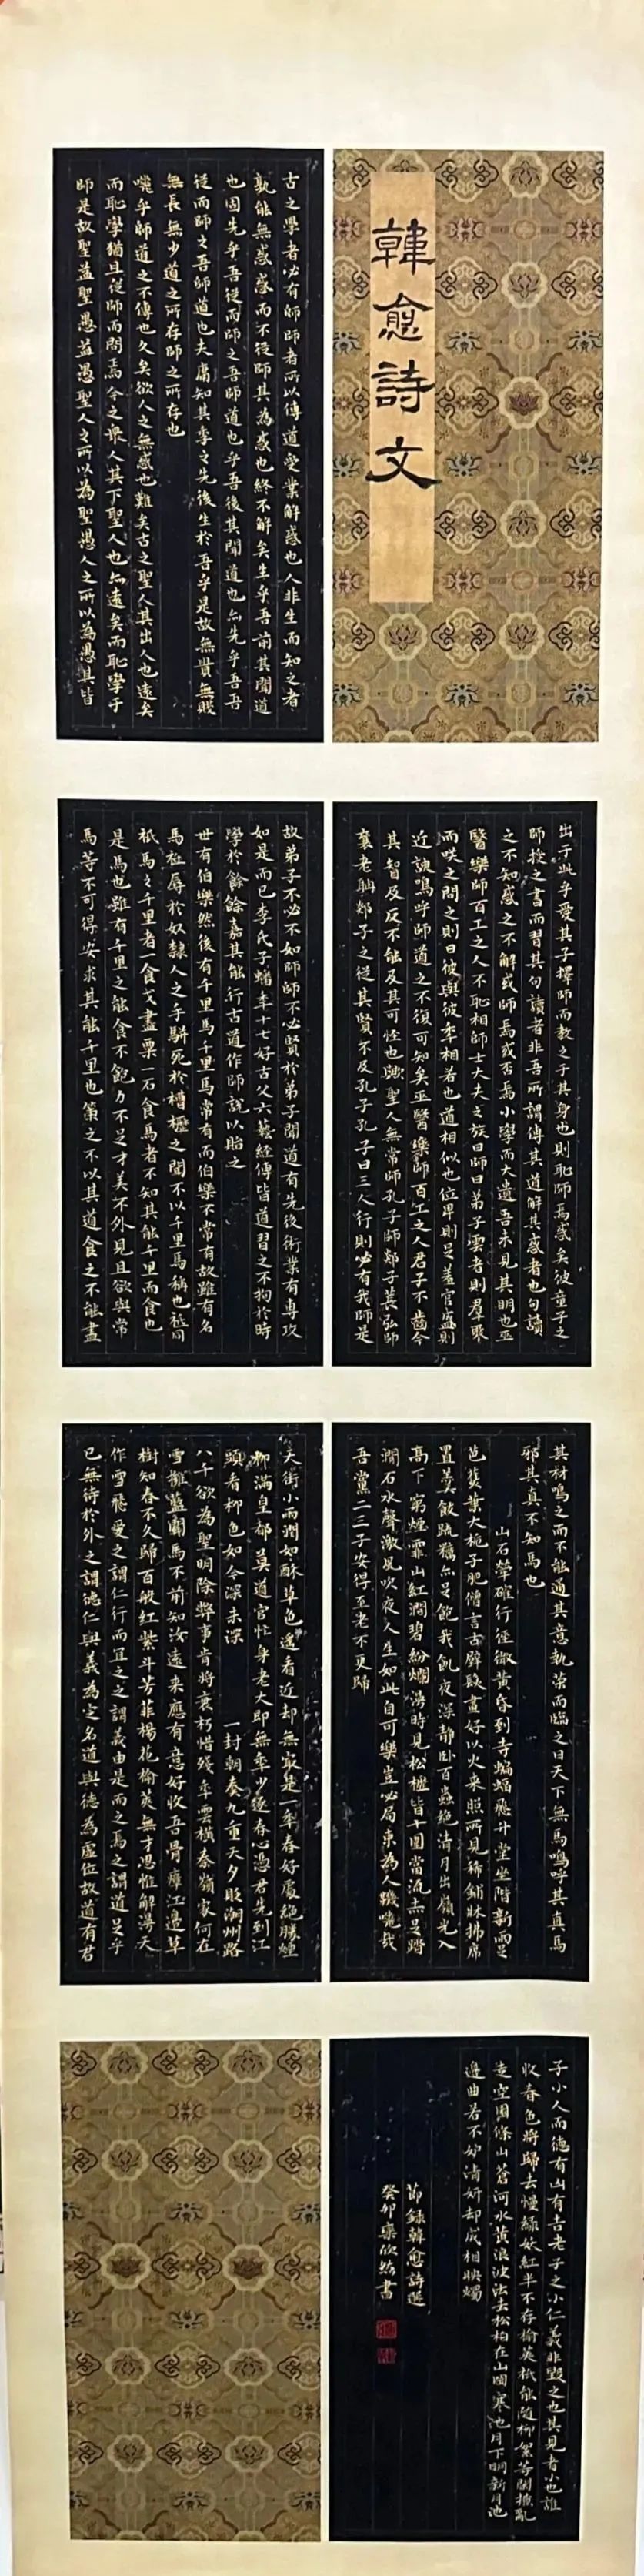 韓愈詩文
古之學者必有師師者所以傳道受業解惑也人非生而知之者
孰能無惑惑而不從師其為惑也終不解矣生乎吾前其聞道
也固先乎吾從而師之吾師道也乎吾後其聞道也亦先乎吾吾
從而師之吾師道也夫庸知其年之先後生於吾乎是故無貴無賤
無長無少道之所存師之所存也
嗟乎師道之不傳也久矣欲人之無惑也難矣古之聖人其出人也遠矣
而恥學猶且從師而問焉今之衆人其下聖人也亦遠矣而恥學于
師是故聖益聖愚益愚聖人之所以為聖愚人之所以為愚其皆
出于此乎愛其子擇師而教之于其身也則恥師焉惑矣彼童子之
師授之書而習其句讀者非吾所謂傳其道解其惑者也句讀
之不知惑之不解或師焉或否焉小學而大遺吾未見其明也巫
醫樂師百工之人不恥相師士大夫之族曰師曰弟子雲者則羣聚
而咲之問之則曰彼與彼年相若也道相似也位卑則足羞官盛則
近諛嗚呼師道之不復可知矣巫醫樂師百工之人君子不齒今
其智及反不能及其可怪也歟聖人無常師孔子師郯子萇弘師
襄老聃郯子之徒其賢不及孔子孔子曰三人行則必有我師是
故弟子不必不如師師不必賢於弟子聞道有先後術業有專攻
如是而已李氏子蟠年十七好古文六藝經傳皆通習之不拘於時
學於餘餘嘉其能行古道作師說以貽之
世有伯樂然後有千里馬千里馬常有而伯樂不常有故雖有名
馬祗辱於奴隸人之手駢死於槽櫪之間不以千里馬稱也祗同
祇馬之千里者一食或盡粟一石食馬者不知其能千里而食也
是馬也雖有千里之能食不飽力不足才美不外見且欲與常
馬等不可得安求其能千里也策之不以其道食之不能盡
其材鳴之而不能通其意執策而臨之曰天下無馬嗚呼其真馬
邪其真不知馬也
山石犖確行徑微黃昏到寺蝙蝠飛升堂坐階新雨足
芭蕉葉大梔子肥僧言古壁佛畫好以火来照所見稀鋪牀拂席
置羹飯疏糲亦足飽我飢夜深靜卧百蟲絕清月出嶺光入
高下窮煙霏山紅澗碧紛爛漫時見松櫪皆十圍當流赤足蹋
澗石水聲激激風吹衣人生如此自可樂豈必局束為人鞿嗟哉
吾黨二三子安得至老不更歸
天街小雨潤如酥草色遙看近却無最是一年春好處絕勝煙
柳滿皇都 莫道官忙身老大即無年少逐春心憑君先到江
頭看柳色如今深未深 一封朝奏九重天夕貶潮州路
八千欲為聖明除弊事肯將衰朽惜殘年雲橫秦嶺家何在
雪擁藍關馬不前知汝遠来應有意好收吾骨瘴江邊草
樹知春不久歸百般紅紫斗芳菲楊花榆莢無才思惟解漫天
作雪飛 愛之謂仁行而宜之之謂義由是而之焉之謂道足乎
已無待於外之謂德仁與義為定名道與德為虛位故道有君
子小人而德有凶有吉老子之小仁義非毀之也其見者小也誰
收春色將歸去慢綠妖紅半不存榆莢祇能隨柳絮等閑撩亂
走空園條山蒼河水黃浪波沄沄去松柏在山岡寒池月下明新月池
邊曲若不妒清妍却成相映燭
節錄韓愈詩選
癸卯 欣然書